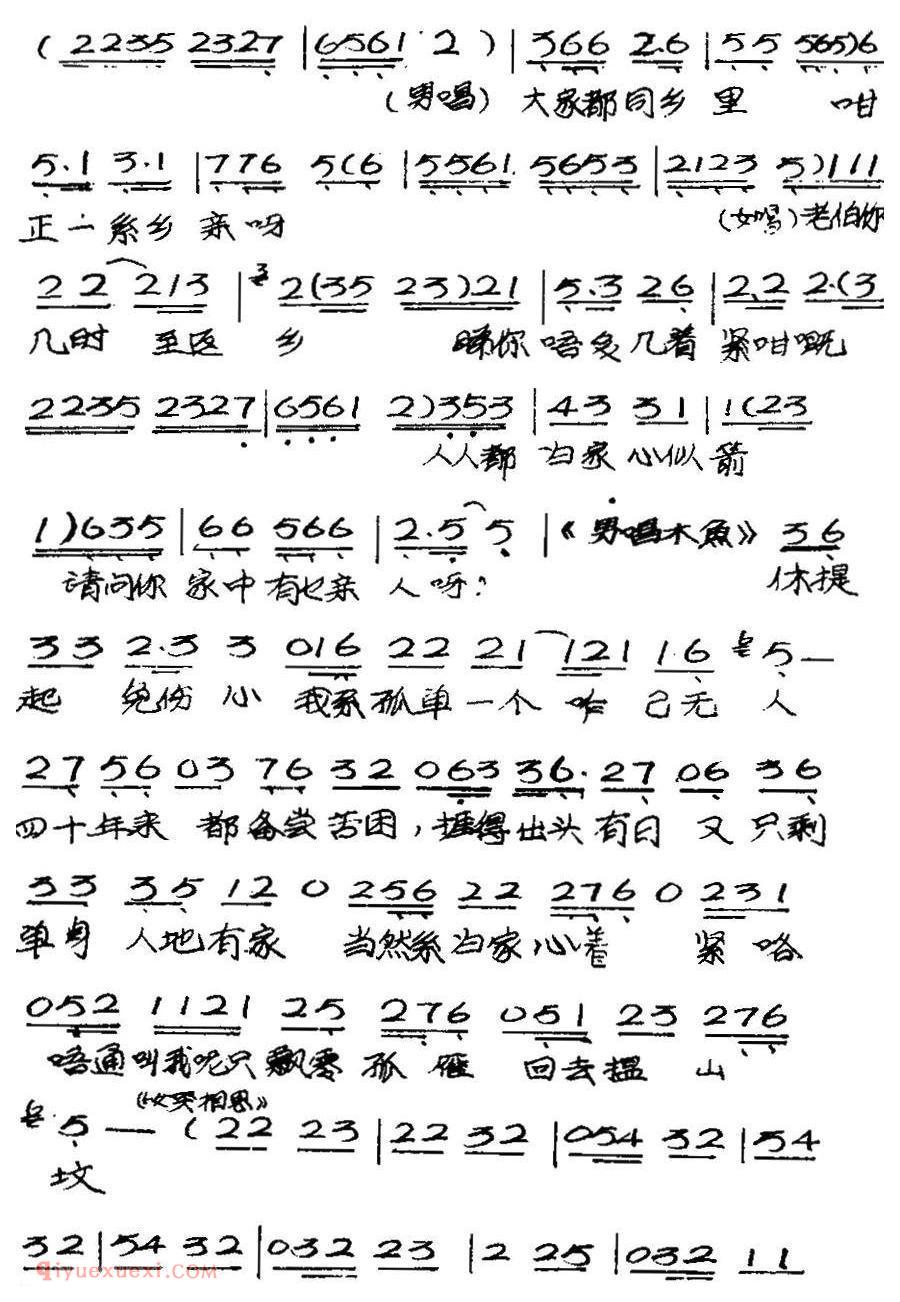 ( 2235 2327 | 6561 2 ) | 366 2.6 | 55 565)6
(男唱) 大家都同乡里 咁
5.1 3.1 | 776 5(6 | 5561 5653 | 2123 5)111
正一系乡亲呀 (女唱) 老伯你
22 213 | 2(35 23)21 | 5.3 26 | 2.2 2.(3
几时 至返 乡 睇你唔多几着紧咁嘅
2235 2327 | 6561 2)353 | 43 31 | 1(23
人人都 归家心似箭
1)635 | 66 566 | 2.5 5 | 《男唱木鱼》 36
请问你 家中有乜亲 人呀? 休提
33 2.3 3 016 22 21 121 1.6 5 —
起 免伤心 我系孤单一个 咋 已无 人
27 56 03 76 32 063 36. 27 06 36
四十年来 都备尝苦困, 捱得出头有日 又只剩
33 35 12 0 256 22 276 0 231
单身 人地有家 当然系归家心着 紧咯
052 1121 25 276 051 23 276
唔通叫我呢只飘零孤雁 回去揾山
《女哭相思》
5 — ( 22 23 | 22 32 | 054 32 | 54
坟
32 | 54 32 | 032 23 | 2 25 | 032 11
qiyuexuexi.com